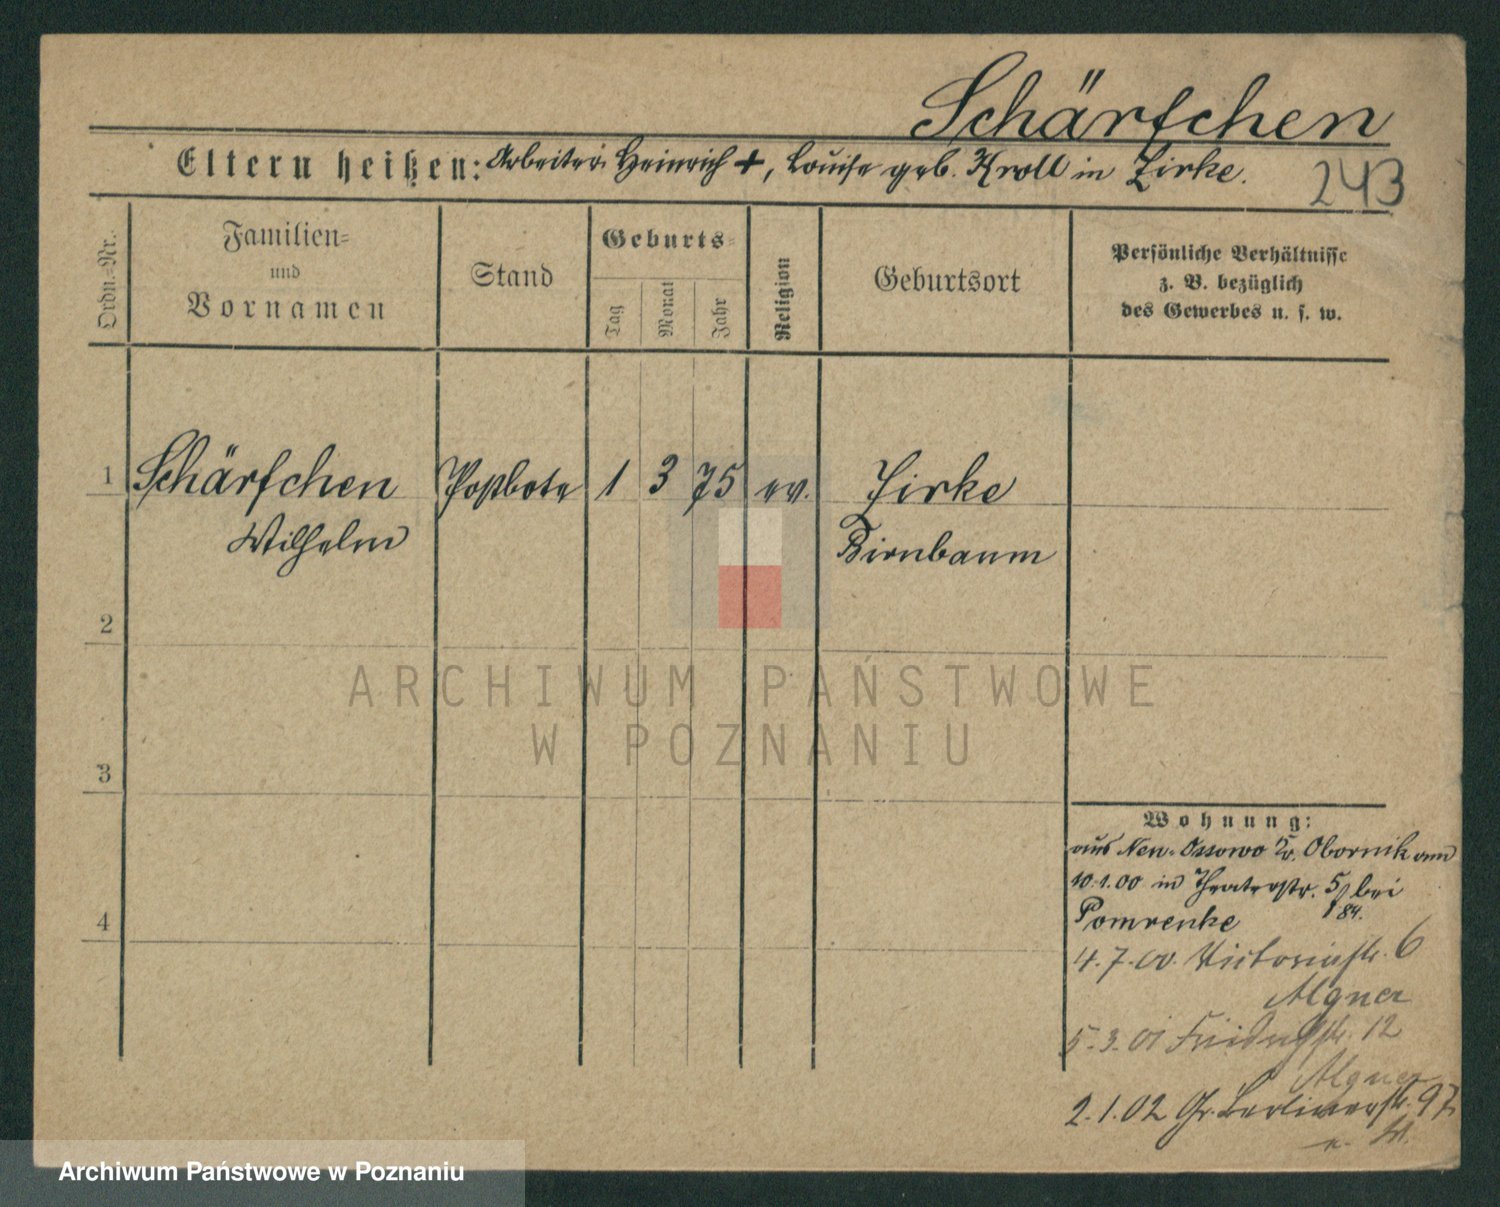 Schärfchen
Eltern heißen: Arbeiter Heinrich +, Louise geb. Kroll in Zirke.
243
Ordn.-Nr.
Familien-
und
Vornamen
Stand
Geburts-
Tag
Monat
Jahr
Religion
Geburtsort
Persönliche Verhältnisse
z. B. bezüglich
des Gewerbes u. s. w.
1 Schärfchen Postbote 1 3 75 ev. Zirke
Wilhelm Birnbaum
2
3
4
Wohnung:
aus Neu-Ossowo Kr. Obornik am
10.1.00 in Theaterstr. 5 bei
Pomrenke 84.
4.7.00. Victoriastr. 6
Algner
5.3.01 12
Algner
2.1.02 Gr. Berlinerstr. 97
ARCHIWUM PAŃSTWOWE
W POZNANIU
Archiwum Państwowe w Poznaniu